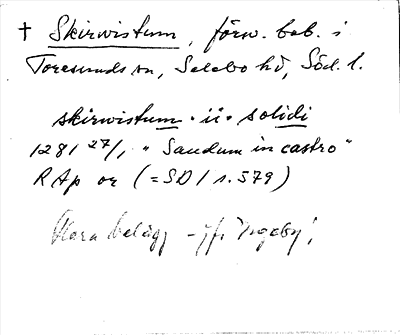 † Skirwistum, förw. beb. i
Toresunds sn, Selebo hd, Södl.
skirwistum · ii · solidi
1281 27/1 "Saudum in castro"
RAp or (= SD 1 s. 579)
Flera belägg - jfr Ingeby;